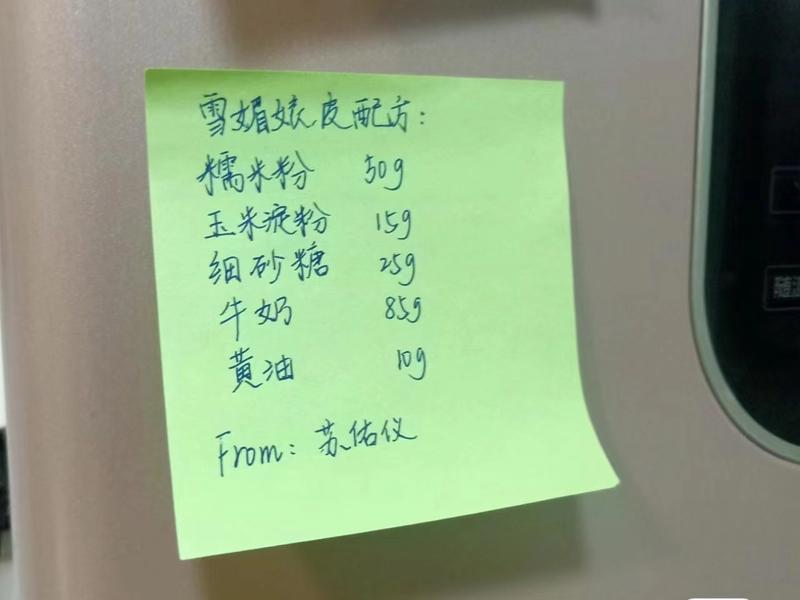 雪媚娘皮配方：
糯米粉 50g
玉米淀粉 15g
细砂糖 25g
牛奶 85g
黄油 10g
From：苏佑仪